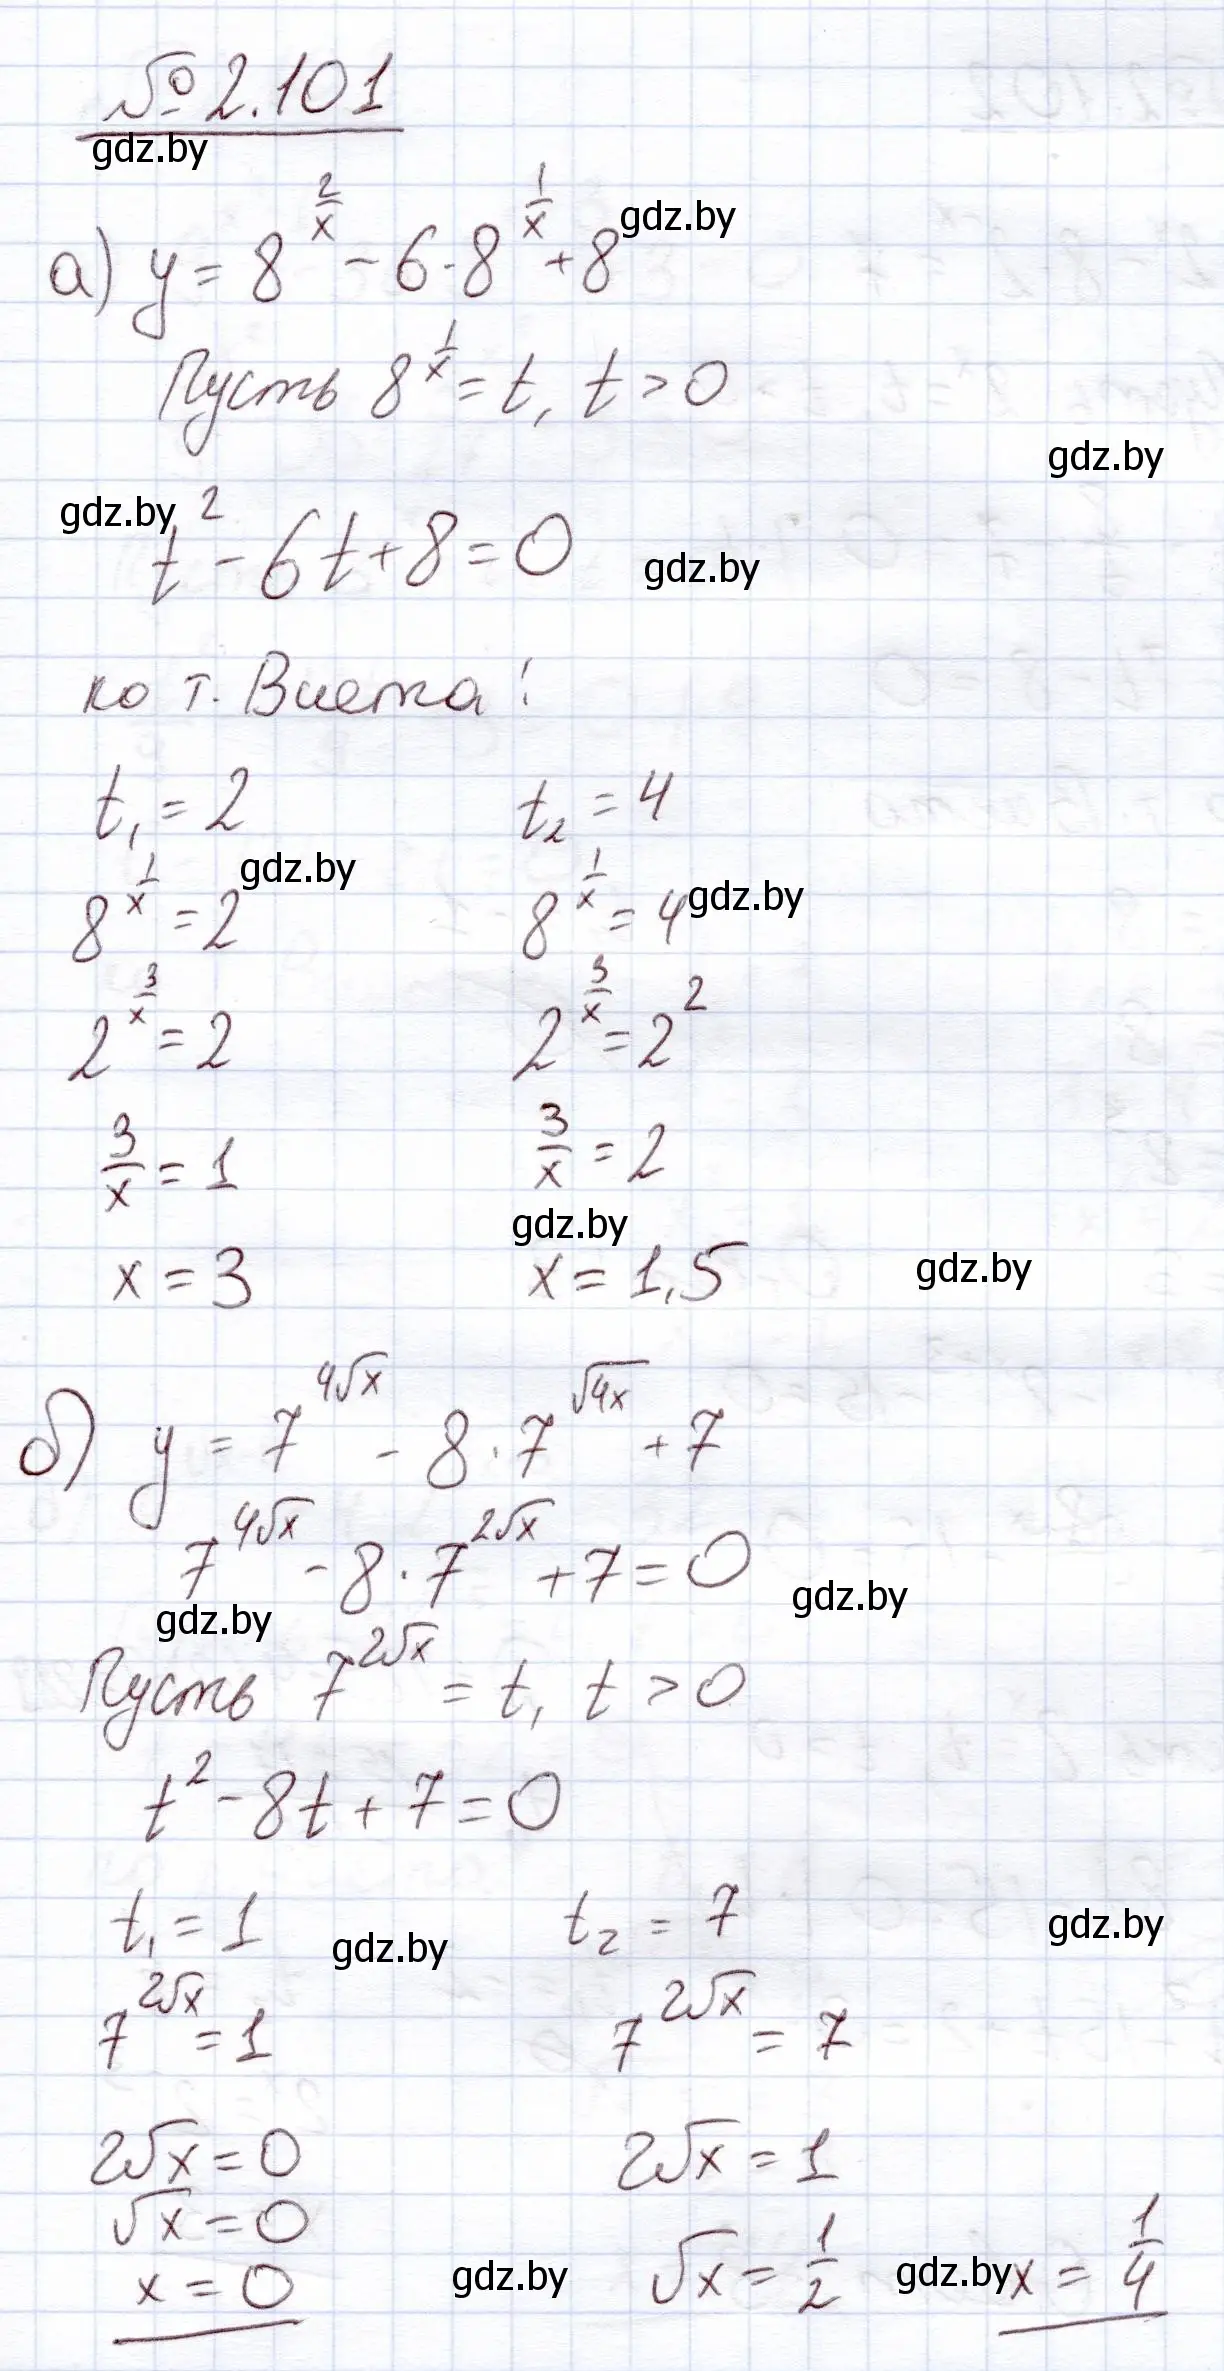 № 2.101
gdz.by
а) y = 8^(2/x) - 6·8^(1/x) + 8 gdz.by
Пусть 8^(1/x) = t, t > 0
gdz.by
gdz.by t² - 6t + 8 = 0
gdz.by
по т. Виета:
t₁ = 2 t₂ = 4
gdz.by
8^(1/x) = 2 8^(1/x) = 4 gdz.by
2^(3/x) = 2 2^(3/x) = 2²
3/x = 1 3/x = 2
gdz.by
x = 3 x = 1,5 gdz.by
б) y = 7^(4√x) - 8·7^(√4x) + 7
7^(4√x) - 8·7^(2√x) + 7 = 0
gdz.by gdz.by
Пусть 7^(2√x) = t, t > 0
t² - 8t + 7 = 0
t₁ = 1 t₂ = 7 gdz.by
gdz.by
7^(2√x) = 1 7^(2√x) = 7
2√x = 0 2√x = 1
√x = 0
x = 0 gdz.by √x = 1/2 gdz.by x = 1/4